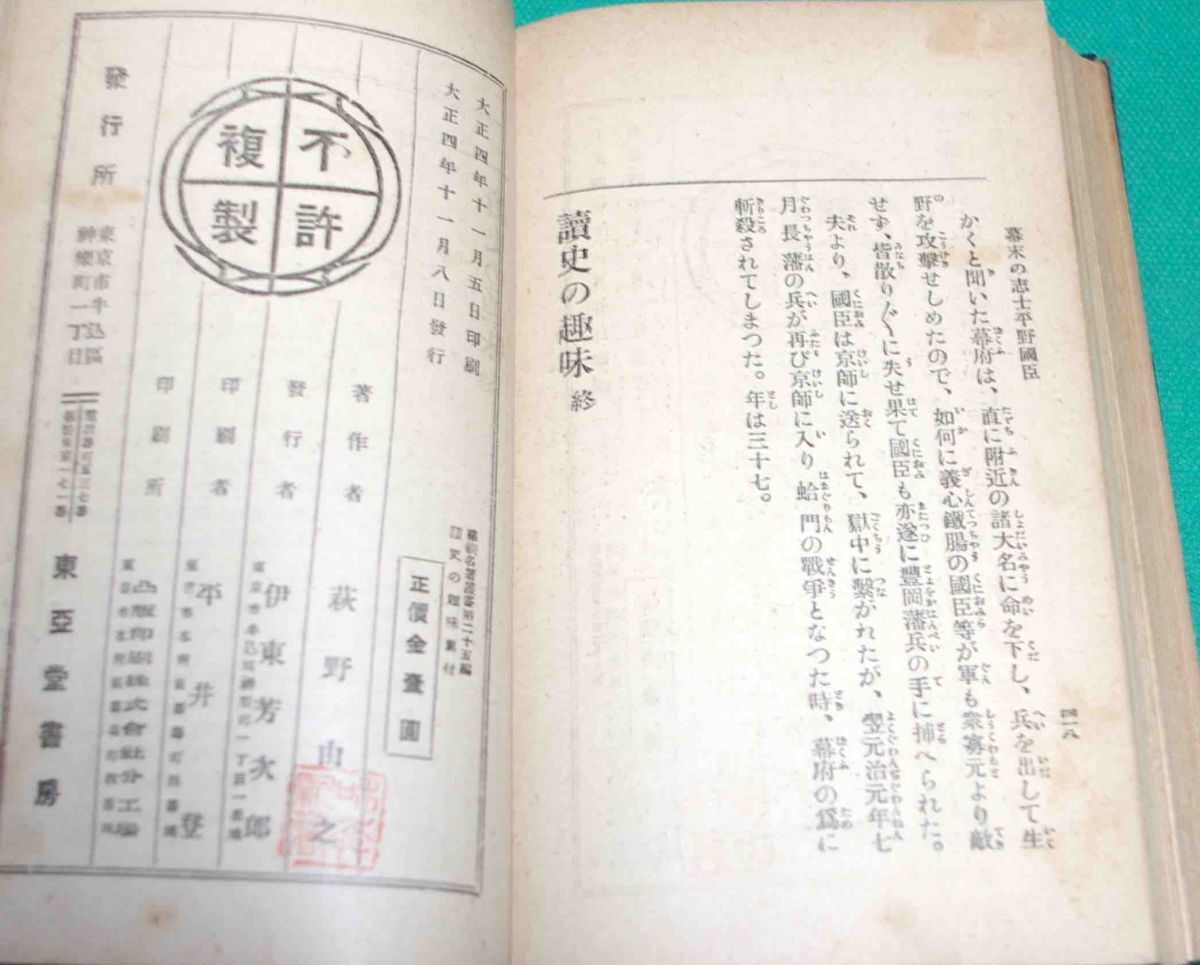 幕末の志士平野國臣
四一八
かくと聞いた幕府は、直に附近の諸大名に命を下し、兵を出して生
野を攻擊せしめたので、如何に義心鐵腸の國臣等が軍も衆寡元より敵
せず、皆散り〴〵に失せ果て國臣も亦遂に豐岡藩兵の手に捕へられた。
夫より、國臣は京師に送られて、獄中に繫がれたが、翌元治元年七
月長藩の兵が再び京師に入り蛤門の戰爭となつた時、幕府の爲に
斬殺されてしまつた。年は三十七。
讀史の趣味 終
大正四年十一月五日印刷
大正四年十一月八日發行
不許
複製
正價金壹圓
著作者 萩野由之
發行者 伊東芳次郎
印刷者 平井登
印刷所 凸版印刷株式會社分工場
發行所
東京市牛込區
神樂町一丁目
東亞堂書房